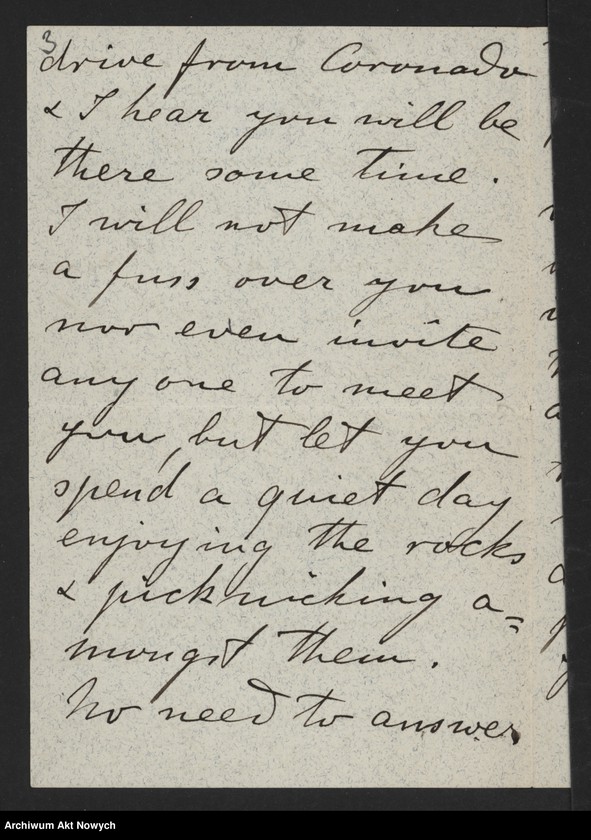 3
drive from Coronado
& I hear you will be
there some time.
I will not make
a fuss over you
nor even invite
any one to meet
you, but let you
spend a quiet day
enjoying the rocks
& picknicking a=
mongst them.
No need to answer,
Archiwum Akt Nowych